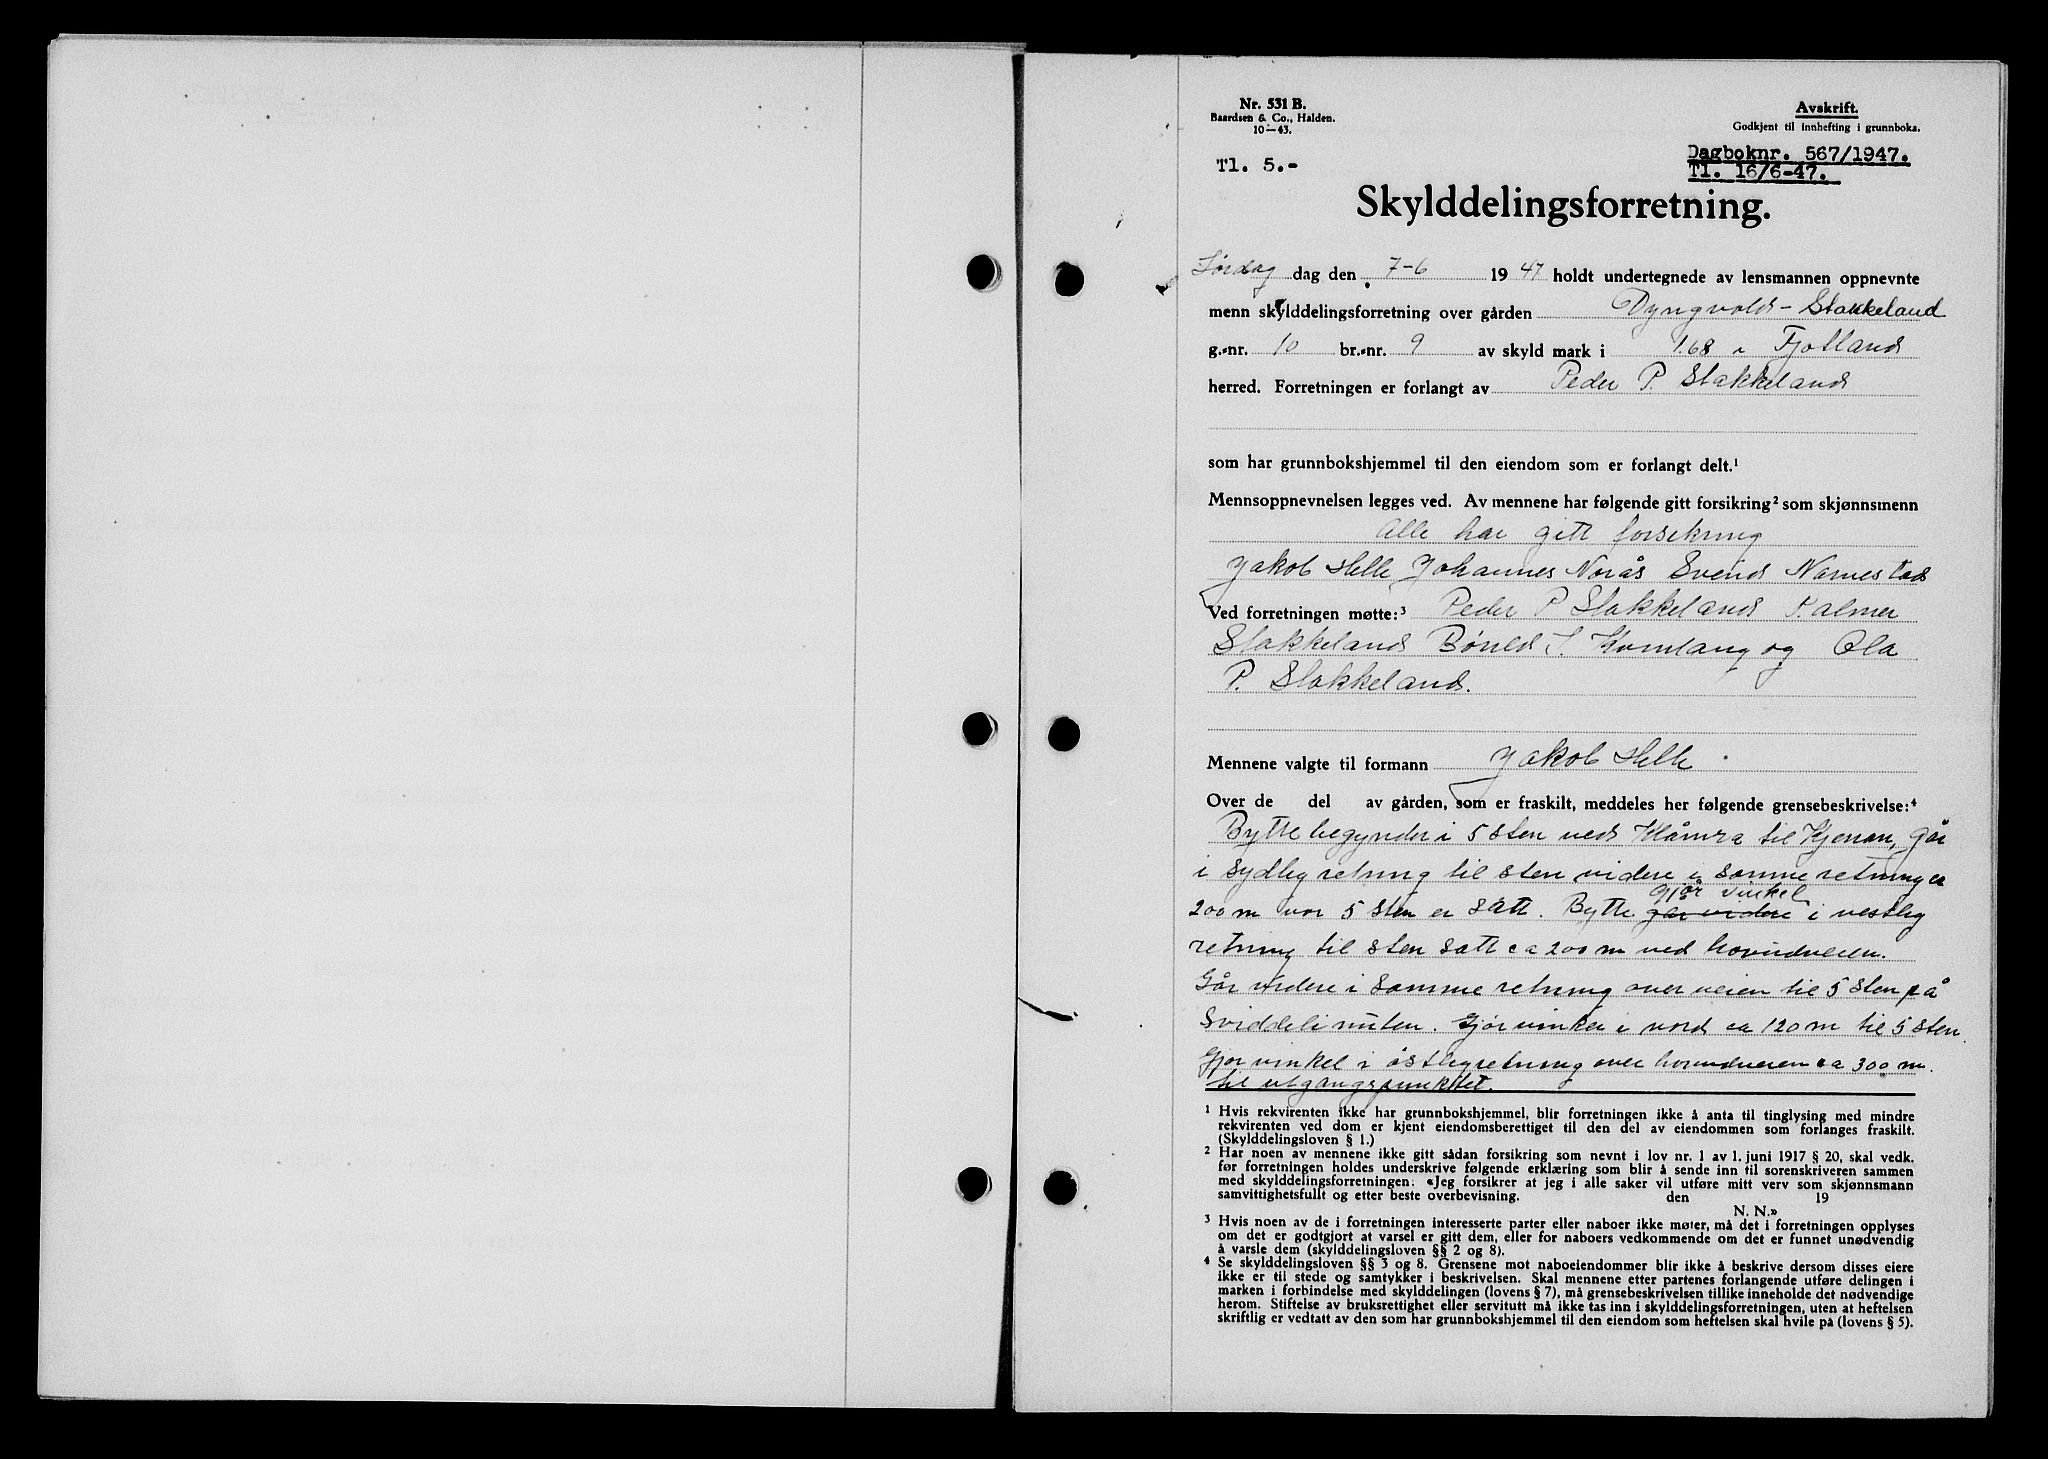 Nr. 531 B.
Baardsen & Co., Halden.
10—43.
Avskrift.
Godkjent til innhefting i grunnboka.
Tl. 5.-
Dagboknr. 567/1947.
Tl. 16/6-47.
Skylddelingsforretning.
Lördag dag den 7-6 1947 holdt undertegnede av lensmannen oppnevnte
menn skylddelingsforretning over gården Dyngvold - Stakkeland
g.-nr. 10 br.-nr. 9 av skyld mark i 1.68 i Fjotland
herred. Forretningen er forlangt av Peder P. Stakkeland
som har grunnbokshjemmel til den eiendom som er forlangt delt.¹
Mennsoppnevnelsen legges ved. Av mennene har følgende gitt forsikring² som skjønnsmenn
Alle har gitt forsikring
Jakob Helle Johannes Norås Svend Narvestad
Ved forretningen møtte:³ Peder P Stakkeland Palmer
Stakkeland S. og Ola
P. Stakkeland.
Mennene valgte til formann Jakob Helle
Over de del av gården, som er fraskilt, meddeles her følgende grensebeskrivelse:⁴
Bytte begynder i 5 sten ved til Kjenan, går
i sydlig retning til sten videre i samme retning ca
200 m vor 5 sten er satt. Bytte går videre gjør vinkel i vestlig
retning til sten satt ca 200 m ved hovudveien.
Går videre i samme retning over veien til 5 sten på
Sviddelinuten. Gjör vinkel i nord ca 120 m til 5 sten.
Gjør vinkel i östlig retning over hovudveien ca 300 m.
til utgangspunktet.
¹ Hvis rekvirenten ikke har grunnbokshjemmel, blir forretningen ikke å anta til tinglysing med mindre
rekvirenten ved dom er kjent eiendomsberettiget til den del av eiendommen som forlanges fraskilt.
(Skylddelingsloven § 1.)
² Har noen av mennene ikke gitt sådan forsikring som nevnt i lov nr. 1 av 1. juni 1917 § 20, skal vedk.
før forretningen holdes underskrive følgende erklæring som blir å sende inn til sorenskriveren sammen
med skylddelingsforretningen: «Jeg forsikrer at jeg i alle saker vil utføre mitt verv som skjønnsmann
samvittighetsfullt og etter beste overbevisning. den 19
N. N.»
³ Hvis noen av de i forretningen interesserte parter eller naboer ikke møter, må det i forretningen opplyses
om det er godtgjort at varsel er gitt dem, eller for naboers vedkommende om det er funnet unødvendig
å varsle dem (skylddelingsloven §§ 2 og 8).
⁴ Se skylddelingsloven §§ 3 og 8. Grensene mot naboeiendommer blir ikke å beskrive dersom disses eiere
ikke er til stede og samtykker i beskrivelsen. Skal mennene etter partenes forlangende utføre delingen i
marken i forbindelse med skylddelingen (lovens § 7), må grensebeskrivelsen tillike inneholde det nødvendige
herom. Stiftelse av bruksrettighet eller servitutt må ikke tas inn i skylddelingsforretningen, uten at heftelsen
skriftlig er vedtatt av den som har grunnbokshjemmel til den eiendom som heftelsen skal hvile på (lovens § 5).